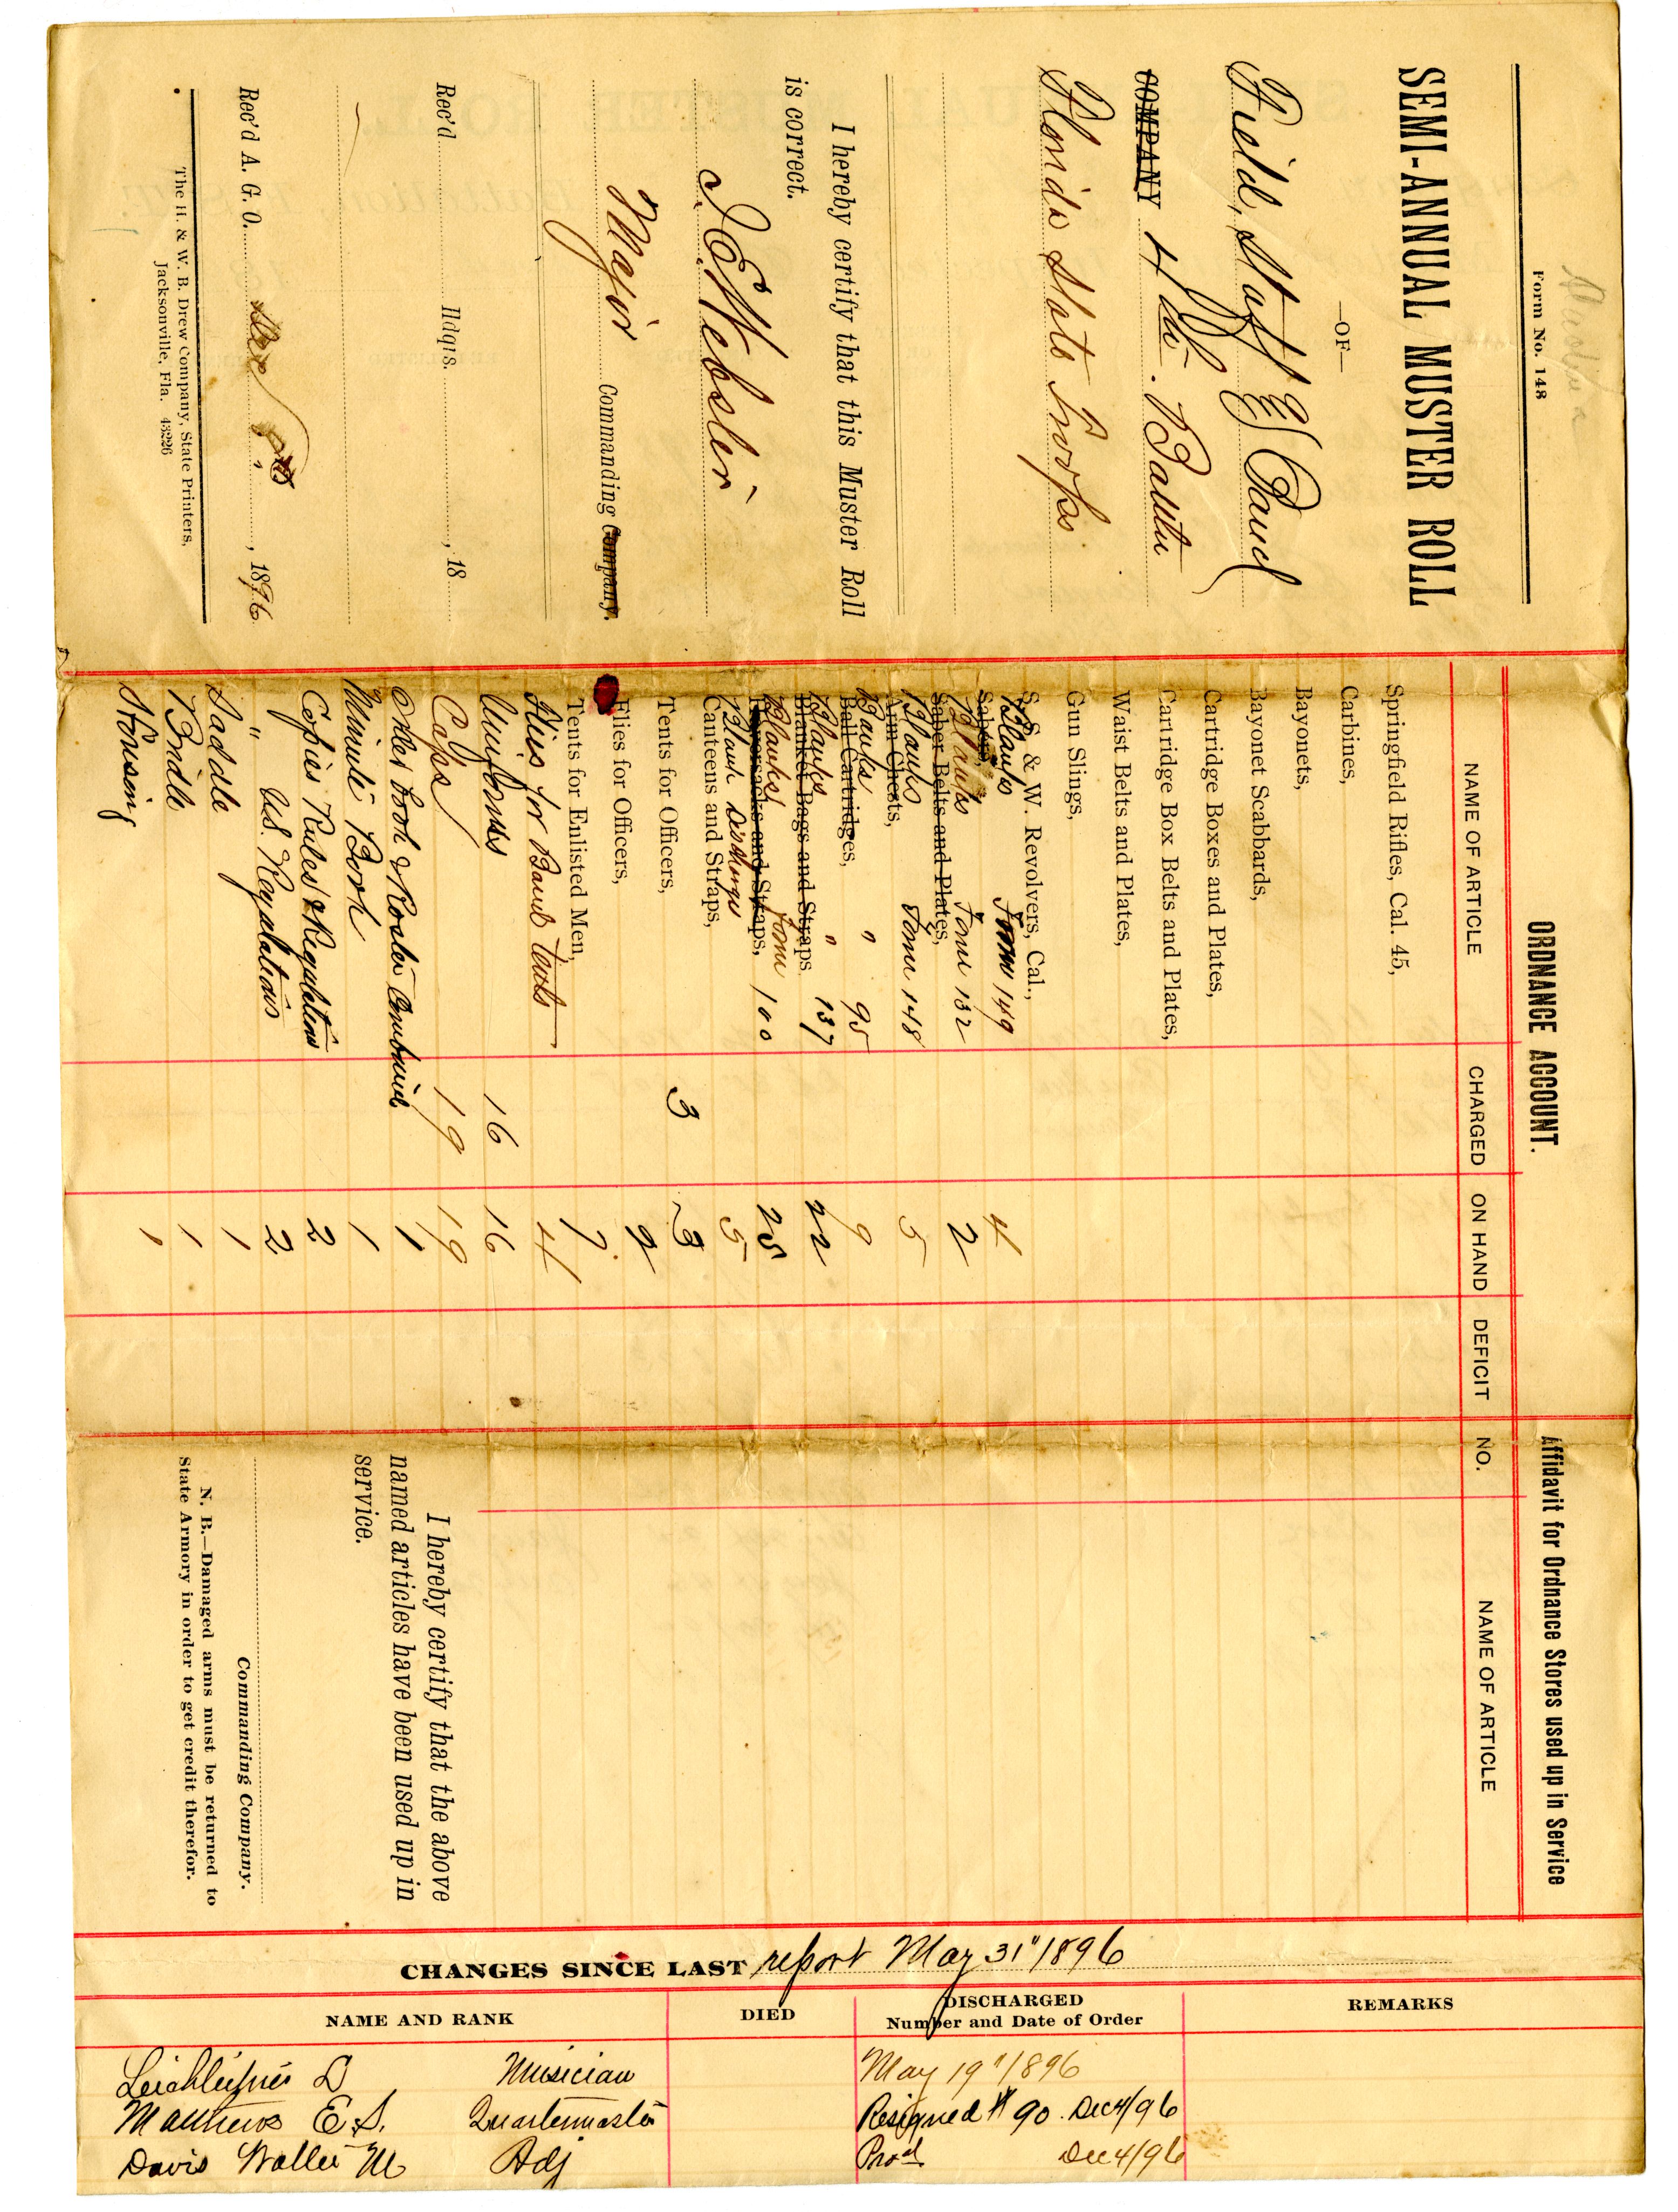 Form No. 148
SEMI-ANNUAL MUSTER ROLL
—OF—
Field, Staff & Band
COMPANY 4th. Battn
Florida State Troops
I hereby certify that this Muster Roll
is correct.
Webster
Major Commanding Company.
Rec'd Hdqrs. , 18
Rec'd A. G. O. Dec , 1896
The H. & W. B. Drew Company, State Printers,
Jacksonville, Fla. 43226
ORDNANCE ACCOUNT.
NAME OF ARTICLE CHARGED ON HAND DEFICIT
Springfield Rifles, Cal. 45,
Carbines,
Bayonets,
Bayonet Scabbards,
Cartridge Boxes and Plates,
Cartridge Box Belts and Plates,
Waist Belts and Plates,
Gun Slings,
S. S. & W. Revolvers, Cal.,
Blanks Form 149 4
Sabers,
Blanks Form 132 2
Saber Belts and Plates,
Blanks Form 148 5
Arm Chests,
Blanks " 95 9
Ball Cartridges,
Blanks " 137 22
Blanket Bags and Straps
Blanks Form 100 25
Haversacks and Straps,
Blank Discharges 5
Canteens and Straps,
Tents for Officers, 3 3
Flies for Officers, 2
Tents for Enlisted Men, 7
Flies for Band Tents 4
Uniforms 16 16
Caps 19 19
Order Book & Roster Combined 1
Minute Book 1
Copies Rules & Regulations 2
" U.S. Regulations 2
Saddle 1
Bridle 1
Housing 1
Affidavit for Ordnance Stores used up in Service
NO. NAME OF ARTICLE
I hereby certify that the above
named articles have been used up in
service.
Commanding Company.
N. B.—Damaged arms must be returned to
State Armory in order to get credit therefor.
CHANGES SINCE LAST report May 31" 1896
NAME AND RANK DIED DISCHARGED
Number and Date of Order REMARKS
D Musician May 19" 1896
Matthews E.S. Quartermaster Resigned # 90. Dec 4/96
Davis Walter M Adj Pro'd Dec 4/96